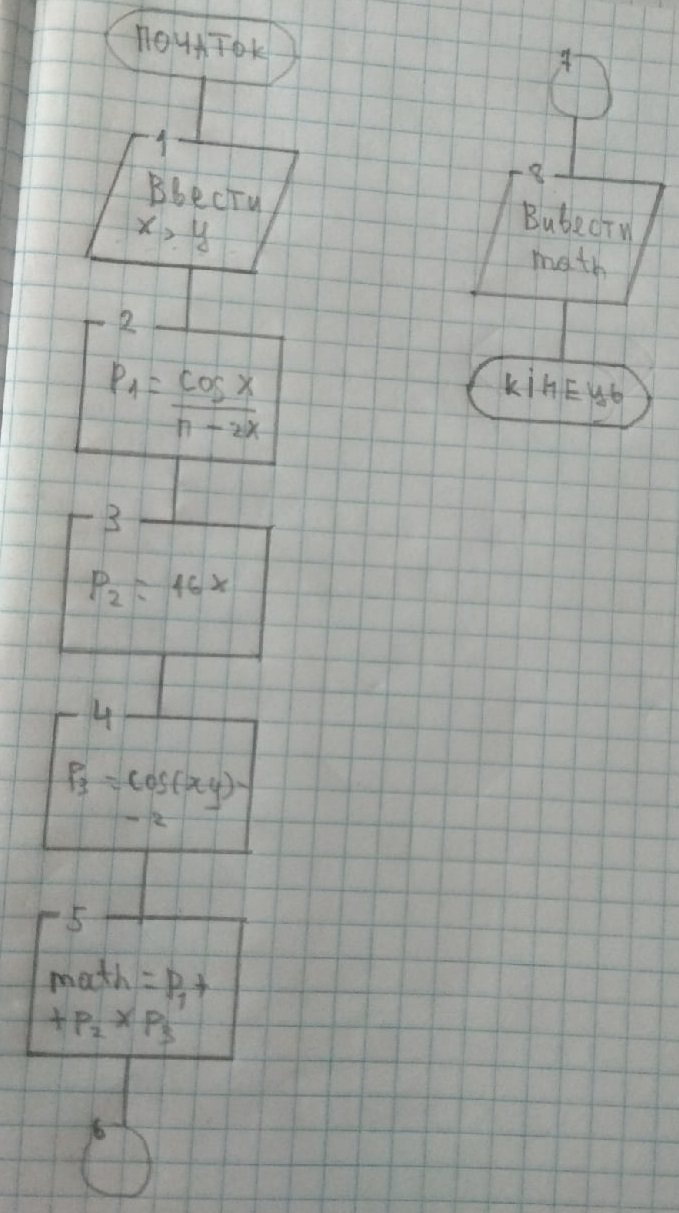 ПОЧАТОК
1
Ввести
x, y
2
P₁ = cos x
π - 2x
3
P₂ = 16x
4
P₃ = cos(xy) -
- 2
5
math = P₁ +
+ P₂ × P₃
6
7
8
Вивести
math
КІНЕЦЬ